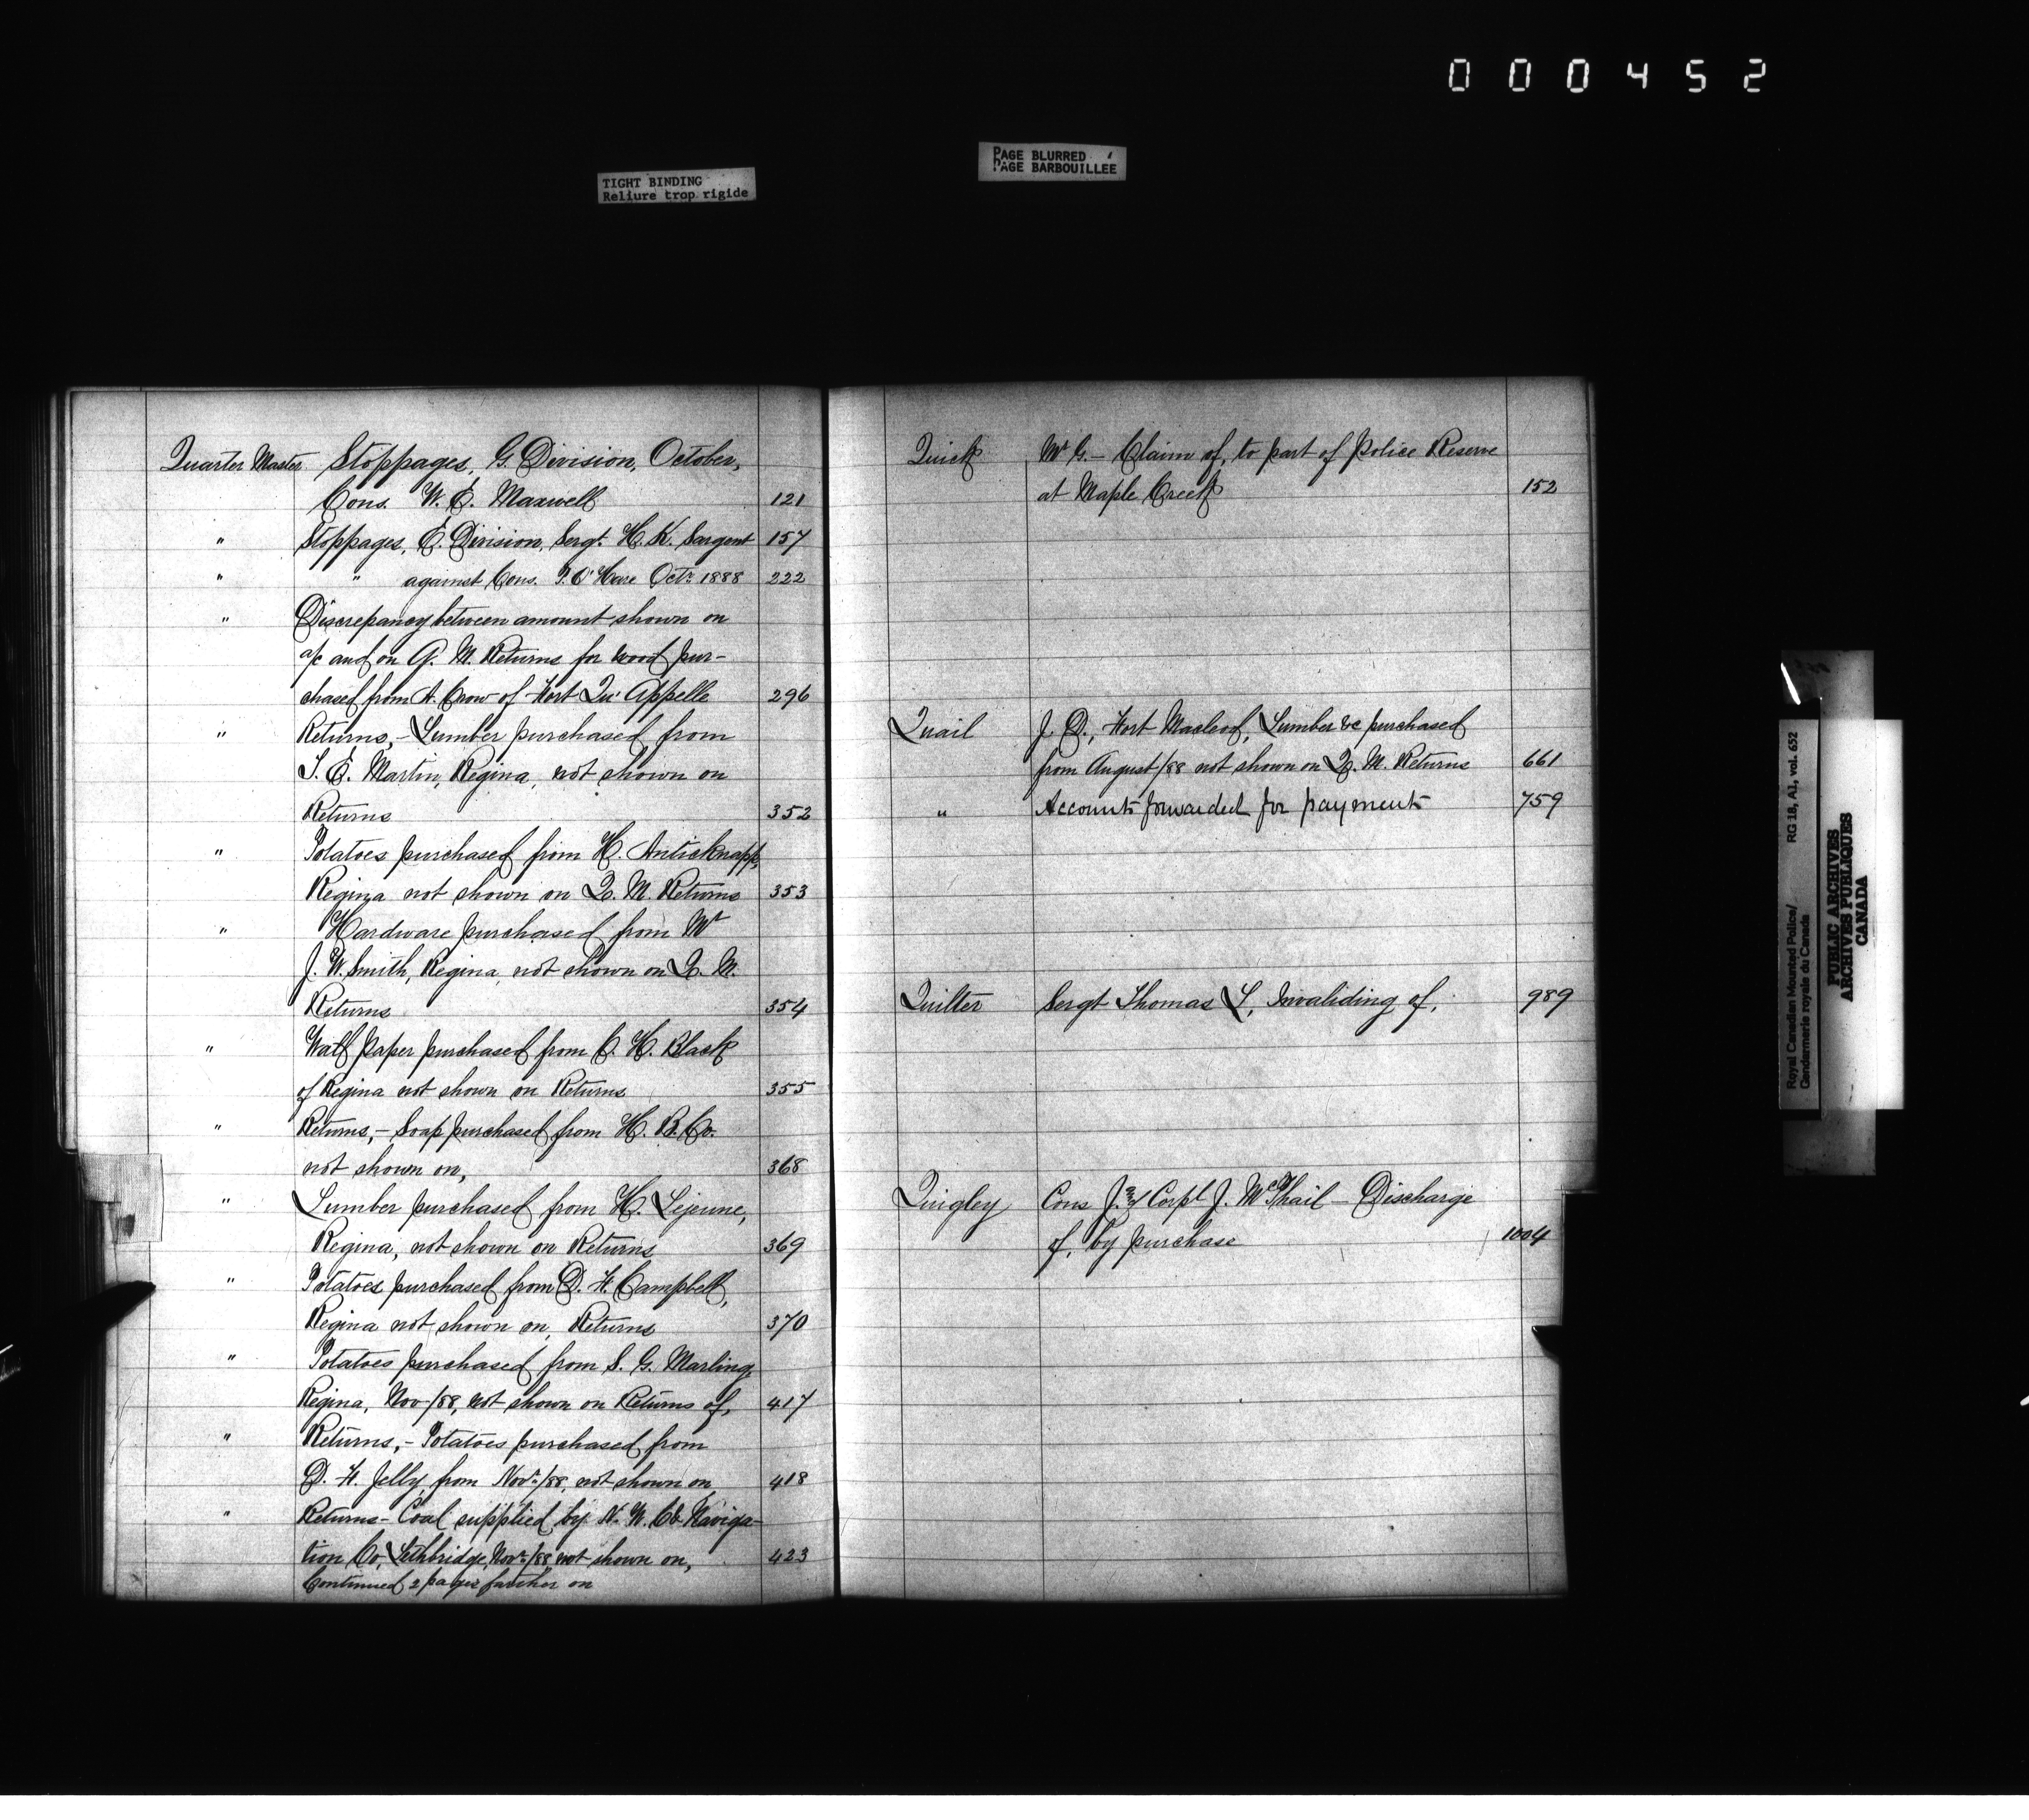 000452
TIGHT BINDING
Reliure trop rigide
PAGE BLURRED
PAGE BARBOUILLEE
Quarter Master Stoppages, G. Division, October,
Cons. W. E. Maxwell 121
" Stoppages, E. Division, Sergt. H. K. Sargent 157
" " against Cons. P. O'Hare Octr. 1888 222
" Discrepancy between amount shown on
a/c and on Q. M. Returns for wood pur-
chased from A. Crow of Fort Qu'Appelle 296
" Returns,- Lumber purchased from
S. E. Martin, Regina, not shown on
Returns 352
" Potatoes purchased from H. Anticknapp,
Regina not shown on Q. M. Returns 353
" Hardware purchased from Mr
J. W. Smith, Regina, not shown on Q. M.
Returns 354
" Wall Paper purchased from C. H. Black
of Regina not shown on Returns 355
" Returns,- Soap purchased from H. B. Co.
not shown on, 368
" Lumber purchased from H. Lejeune,
Regina, not shown on Returns 369
" Potatoes purchased from D. F. Campbell,
Regina not shown on Returns 370
" Potatoes purchased from S. G. Marling
Regina, Nov/88, not shown on Returns of, 417
" Returns,- Potatoes purchased from
D. F. Jelly, from Novr/88, not shown on 418
" Returns- Coal supplied by N. W. C & Naviga-
tion Co, Lethbridge, Novr/88, not shown on, 423
Continued 2 pages farther on
Quick Mr G.- Claim of, to part of Police Reserve
at Maple Creek 152
Quail J. D., Fort Macleod, Lumber &c purchased
from August/88 not shown on Q. M. Returns 661
" Accounts forwarded for payment 759
Quilter Sergt Thomas L, Invaliding of, 989
Quigley Cons J. & Corpl J. McPhail - Discharge
of, by purchase 1004
Royal Canadian Mounted Police/ RG 18, A1, vol. 652
Gendarmerie royale du Canada
PUBLIC ARCHIVES
ARCHIVES PUBLIQUES
CANADA